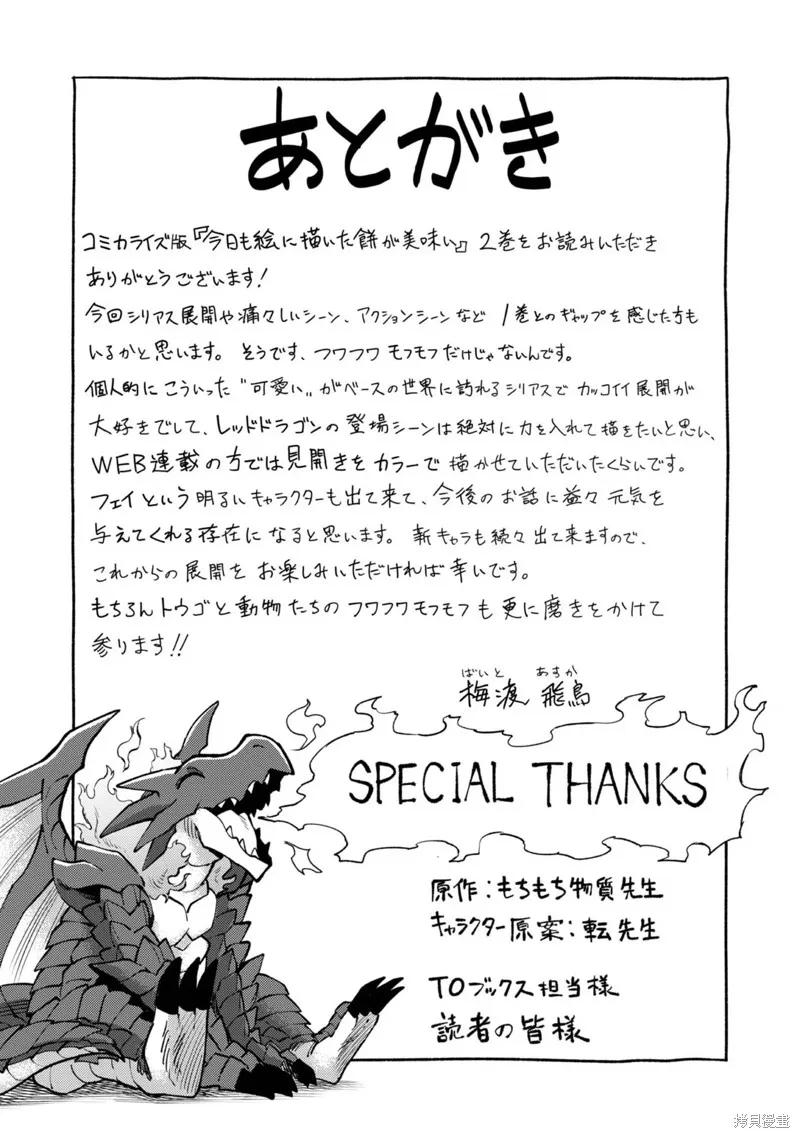 あとがき
コミカライズ版『今日も絵に描いた餅が美味い』2巻をお読みいただき
ありがとうございます!
今回シリアス展開や痛々しいシーン、アクションシーンなど 1巻とのギャップを感じた方も
いるかと思います。そうです、フワフワモフモフだけじゃないんです。
個人的にこういった〝可愛い〟がベースの世界に訪れるシリアスでカッコイイ展開が
大好きでして、レッドドラゴンの登場シーンは絶対に力を入れて描きたいと思い、
WEB連載の方では見開きをカラーで描かせていただいたくらいです。
フェイという明るいキャラクターも出て来て、今後のお話に益々元気を
与えてくれる存在になると思います。新キャラも続々出て来ますので、
これからの展開をお楽しみいただければ幸いです。
もちろんトウゴと動物たちのフワフワモフモフも更に磨きをかけて
参ります!!
ばいと あすか
梅渡 飛鳥
SPECIAL THANKS
原作:もちもち物質先生
キャラクター原案:転先生
TOブックス担当様
読者の皆様
拷貝漫畫